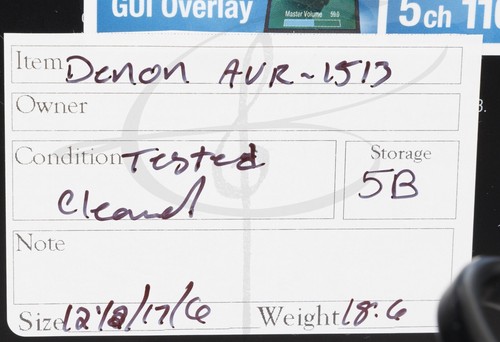 GUI Overlay
Master Volume 59.0
5ch 110
Item Denon AVR-1513
Owner
Condition Tested
Cleaned
Storage
5B
Note
Size
Weight 18.6